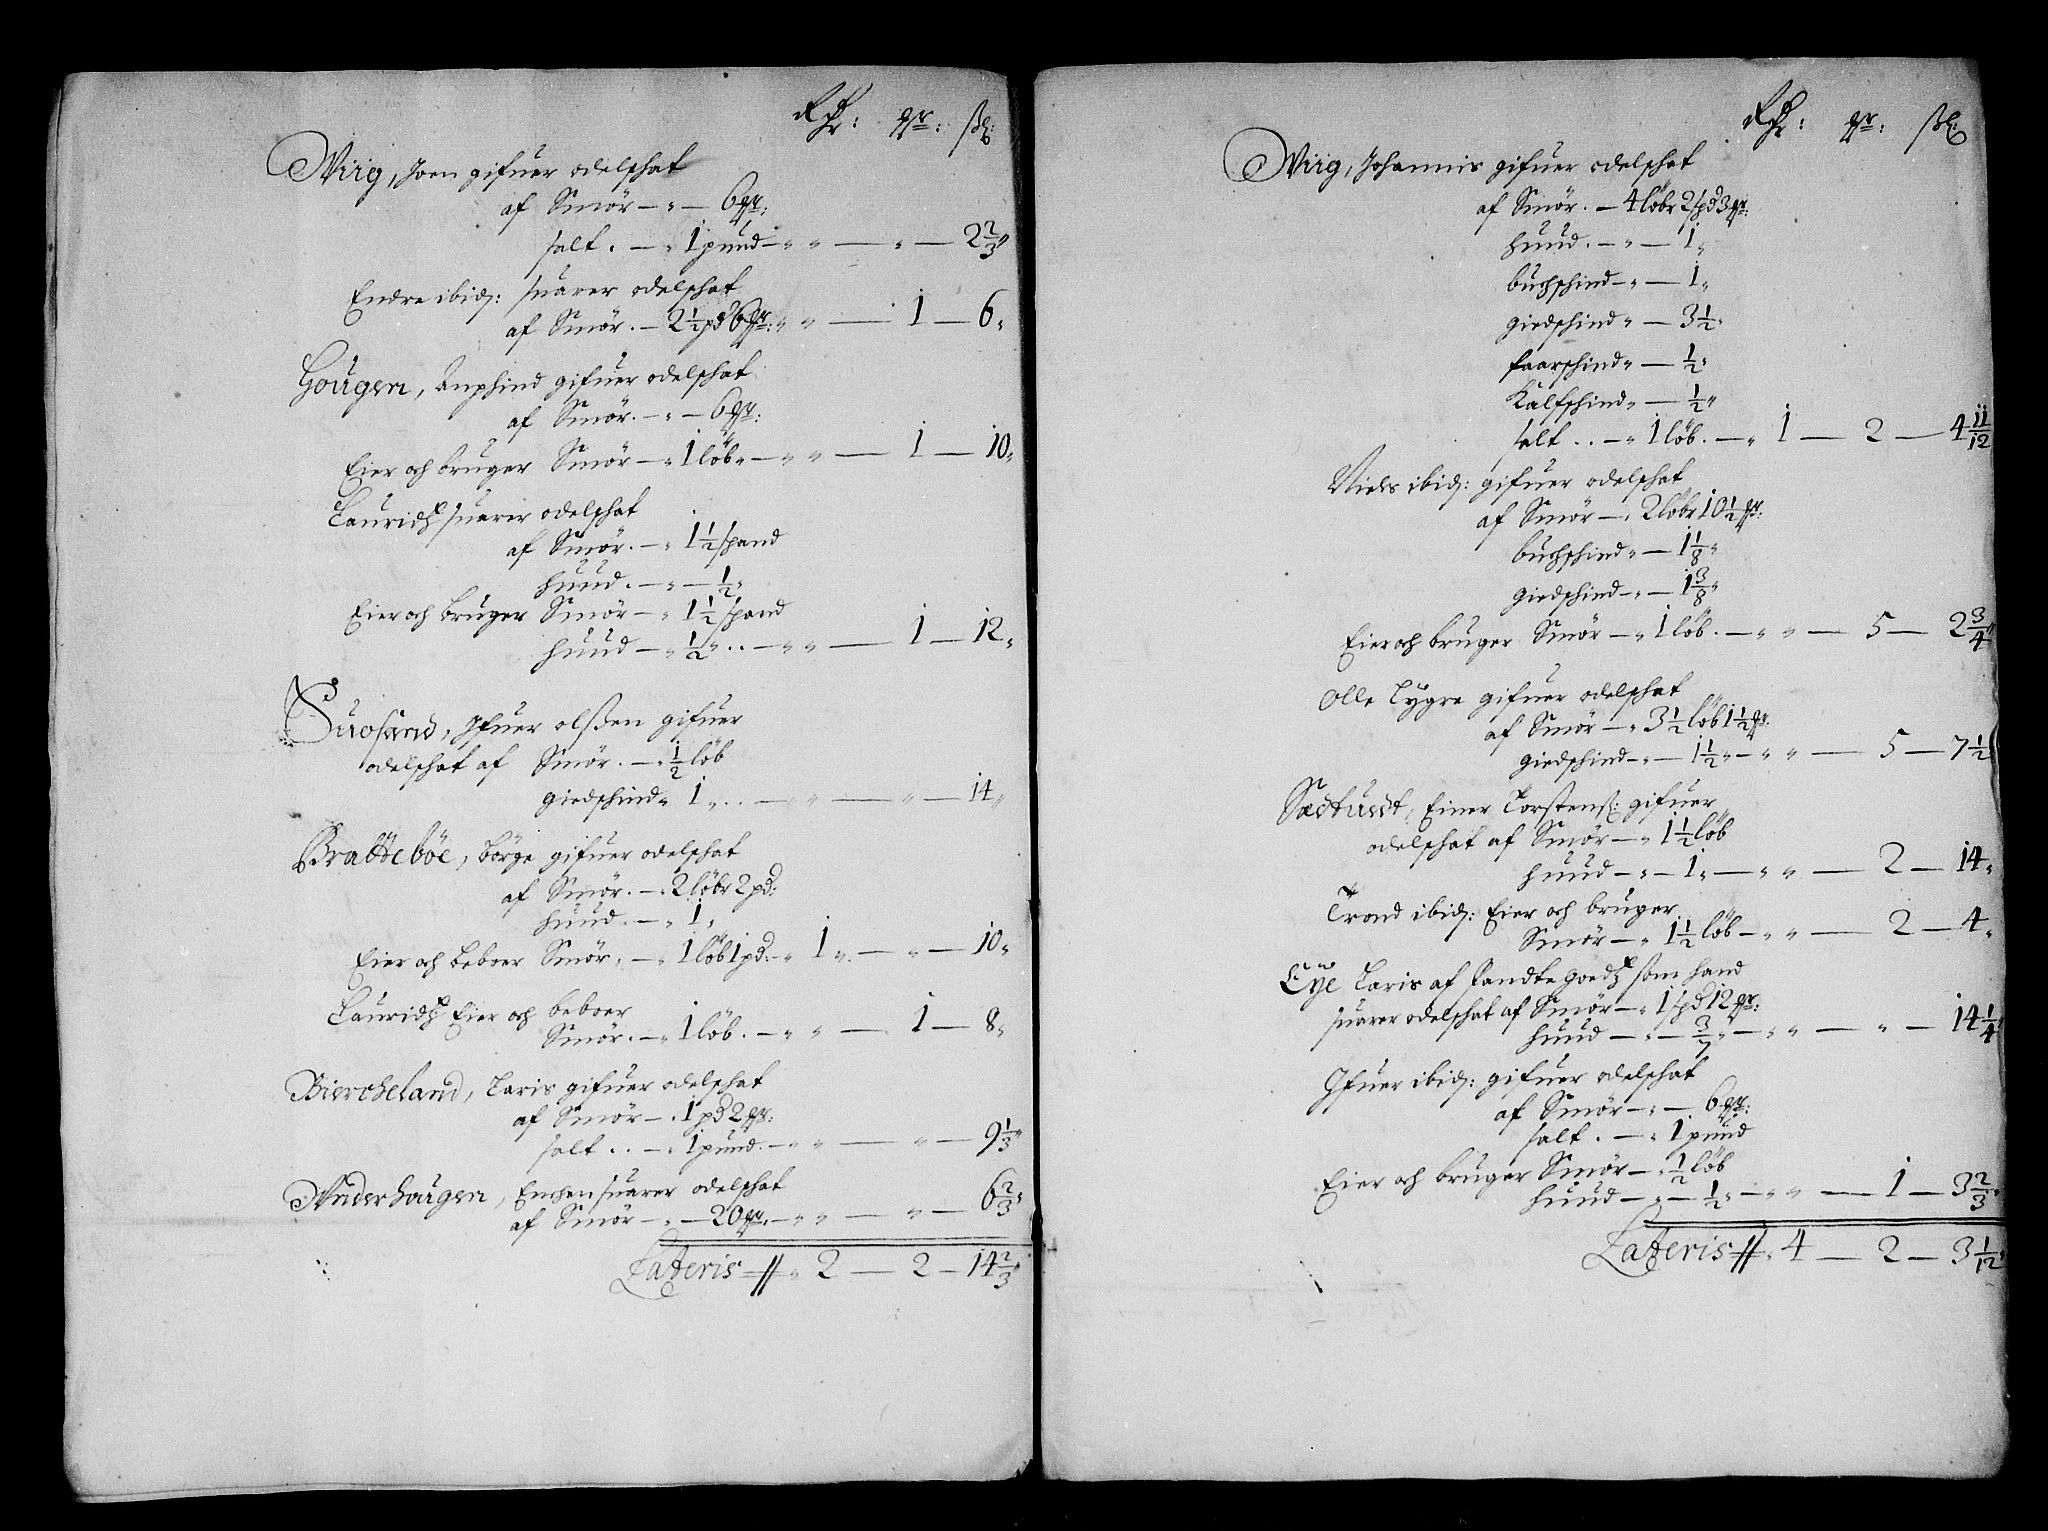 Rdr: qr: sk:
Wiig, Joen gifuer odelschat
af Smör — „ — 6 qr:
salt . — „ 1 pund — „ „ — „ — 2 2/3 „
Endre ibid: suarer odelschat
af Smör . — 2 1/2 pd 6 qr: „ „ — 1 — 6 „
Hougen, Anphind gifuer odelschat
af Smör. — „ — 6 qr:
Eier och bruger Smör — „ 1 löb „ — „ „ — 1 — 10 „
Lauridz suarer odelschat
af Smör. — „ 1 1/2 spand
huud. — „ — 1/2 „
Eier och bruger Smör — „ 1 1/2 spand
huud — „ 1/2 „ . . — „ „ — 1 — 12 „
Suosand, Ifuer olsßen gifuer
odelschat af Smör . — „ 1/2 löb
giedschind „ 1 „ . . — „ „ — „ — 14 „
Bratteböe, börge gifuer odelschat
af Smör. — „ 2 löbr 2 pd:
huud. — „ 1 „
Eier och beboer Smör . — „ 1 löb 1 pd. — „ 1 „ — „ — 10 „
Lauridz Eier och beboer
Smör. — „ 1 löb. — „ „ — 1 — 8 „
Biercheland, Laris gifuer odelschat
af Smör — . 1 pd 2 qr:
salt . . — „ 1 pund. — „ „ — „ — 9 1/3 „
Underhougen, suarer odelschat
af Smör — „ — 20 qr. — „ „ — „ — 6 2/3 „
Lateris // „ 2 — 2 — 14 2/3 „
Rdr: qr: sk:
Wiig, Johannis gifuer odelschat
af Smör. — 4 löbr 2 spd 3 qr:
huud. — „ — 1 „
buchschind — „ — 1 „
giedschind „ — 3 1/2 „
faarschind „ — 1/2 „
Kalfschind „ — 1/2 „
salt . . — „ 1 löb. — „ 1 — 2 — 4 11/12
Niels ibid: gifuer odelschat
af Smör — . 2 löbr 10 1/2 qr:
buchschind „ — 1 1/8 „
giedschind — „ — 1 3/8 „
Eier och bruger Smör — „ 1 löb. — „ „ — 5 — 2 3/4 „
Olle Lygre gifuer odelschat
af Smör — „ 3 1/2 löb 1 1/2 qr.
giedschind — „ — 1 1/2 „ — „ „ — 5 — 7 1/2
Sædtuedt, Einer Torstensß: gifuer
odelschat af Smör — „ 1 1/2 löb
huud — „ — 1 „ — „ „ — 2 — 14 „
Trond ibid: Eier och bruger
Smör — „ 1 1/2 löb — „ „ — 2 — 4 „
Eye Laris af goedz som hand
suarer odelschat af Smör — „ 1 spd 12 qr:
huud — „ — 3/7 „ — „ „ — „ — 14 1/4 „
Ifuer ibid: gifuer odelschat
af Smör — „ — 6 qr:
salt . — „ 1 pund
Eier och bruger Smör — . 1/2 löb
huud — „ — 1/2 „ — „ „ — 1 — 3 2/3 „
Lateris // „ 4 — 2 — 3 1/12 „